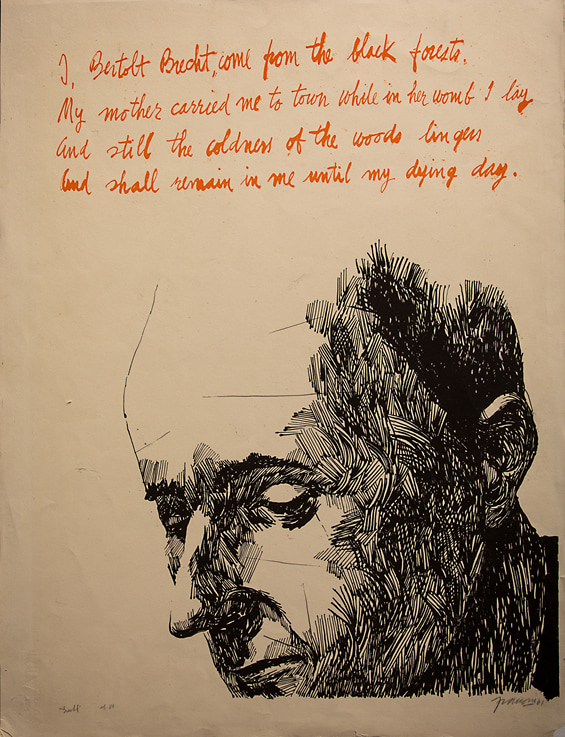 I, Bertolt Brecht, come from the black forests.
My mother carried me to town while in her womb I lay
And still the coldness of the woods lingers
And shall remain in me until my dying day.